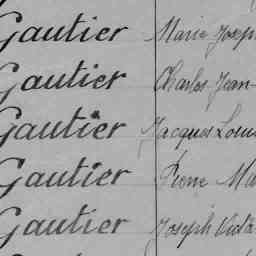 Gautier Marie Josep
Gautier Charles Jean-
Gautier Jacques Louis
Gautier Pierre Ma
Gautier Joseph Vida
Gautier